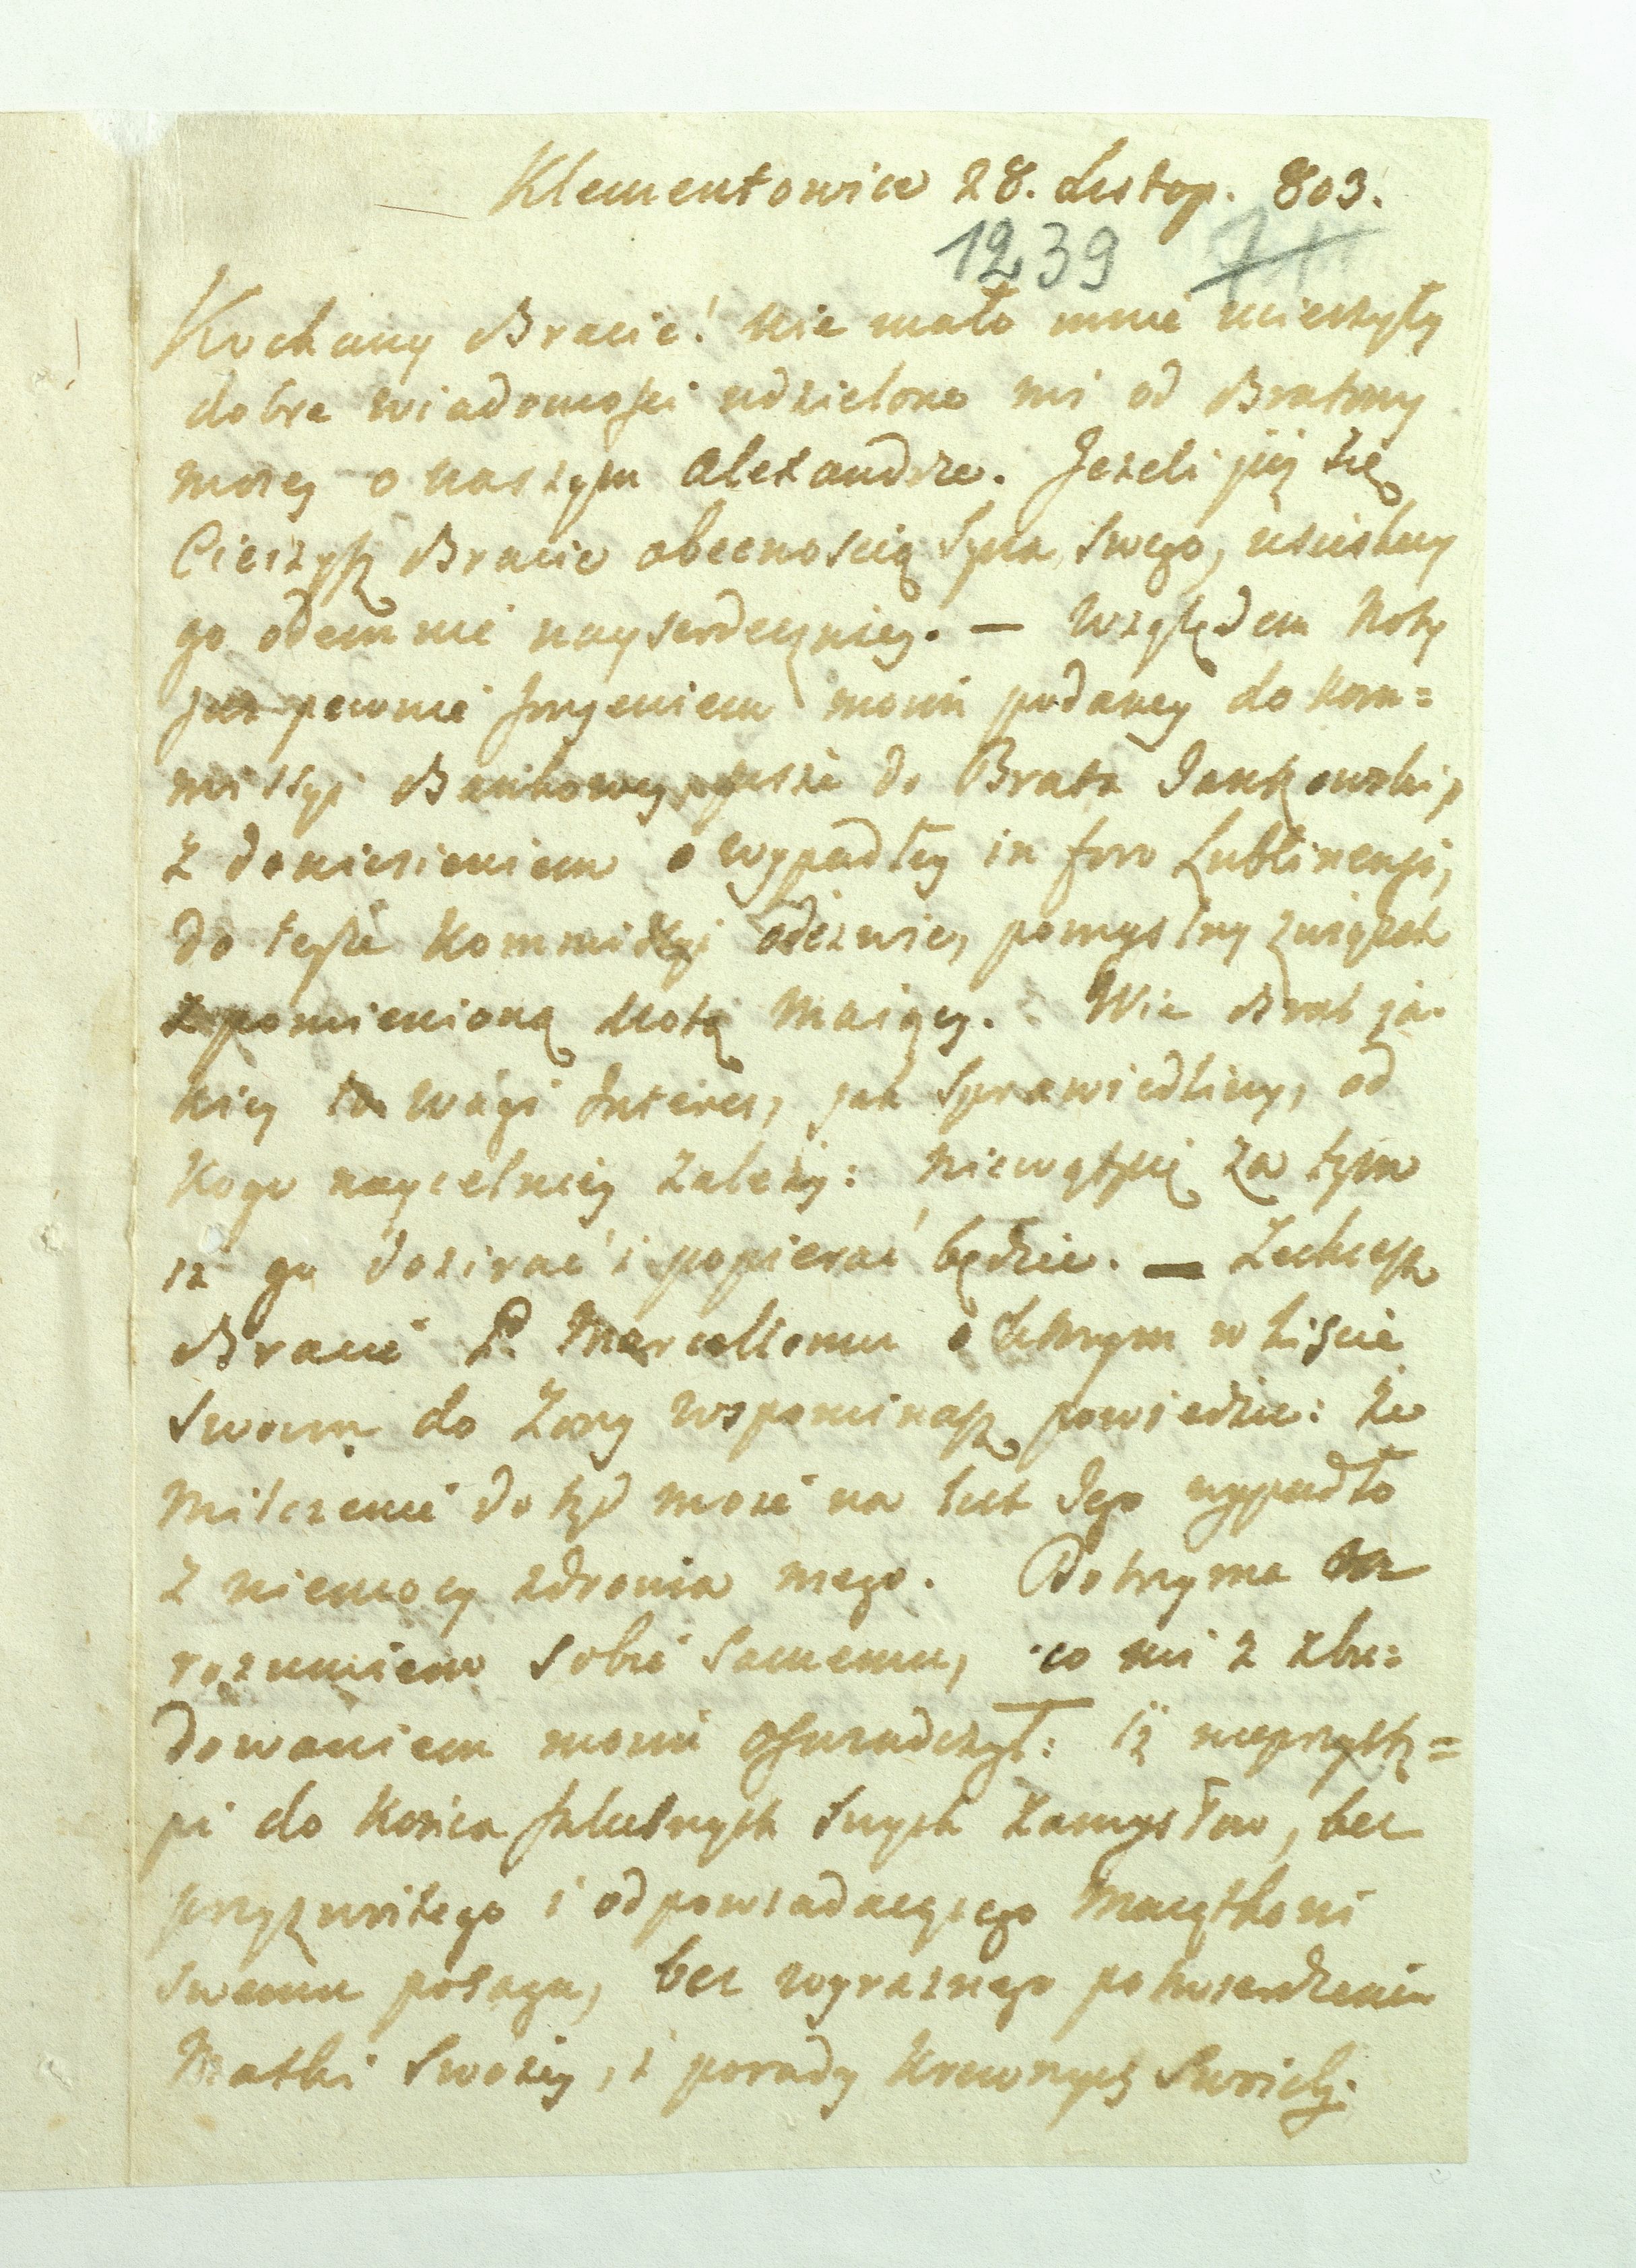 Klementowice 28. Listop. 803.
1239
Kochany Bracie! nie mało mnie ucieszyły
dobre wiadomości udzielone mi od Bratowy
moiey o naszym Alexandrze. Jeżeli już się
Cieszysz Bracie obecnoscią Syna swego, uściskay
go odemnie nayserdeczniey. — Względem Noty
już pewnie imieniem moim podaney do Kom=
missyi Bankowey, piszę do Brata
z doniesieniem o wypadłey in foro Lublinensi,
do teyże Kommissyi odezwie, pomyslny związek
z pomienioną Notą maiącey. Wie Brat ja=
kiey to wagi Interes, jak sprawiedliwy, od
Kogo naycelniey zależy: niewątpię za tym
iż go dozierać i popierać będzie. — Zechcesz
Bracie P. Marcellemu o którym w Liście
swoim do Żony wspominasz powiedzieć: że
milczenie dotąd moie na List Jego wypadło
z niemocy zdrowia mego. Dotrzyma
rozumiem sobie samemu, co mi z zbu=
dowaniem moim oswiadczył: iż nieprzystą=
pi do Końca slubnych swych zamysłow, bez
przyzwoitego i odpowiadaiącego Maiątkowi
swemu posagu, bez wyraznego potwierdzenia
Matki swoiey, i porady Krewnych swoich.